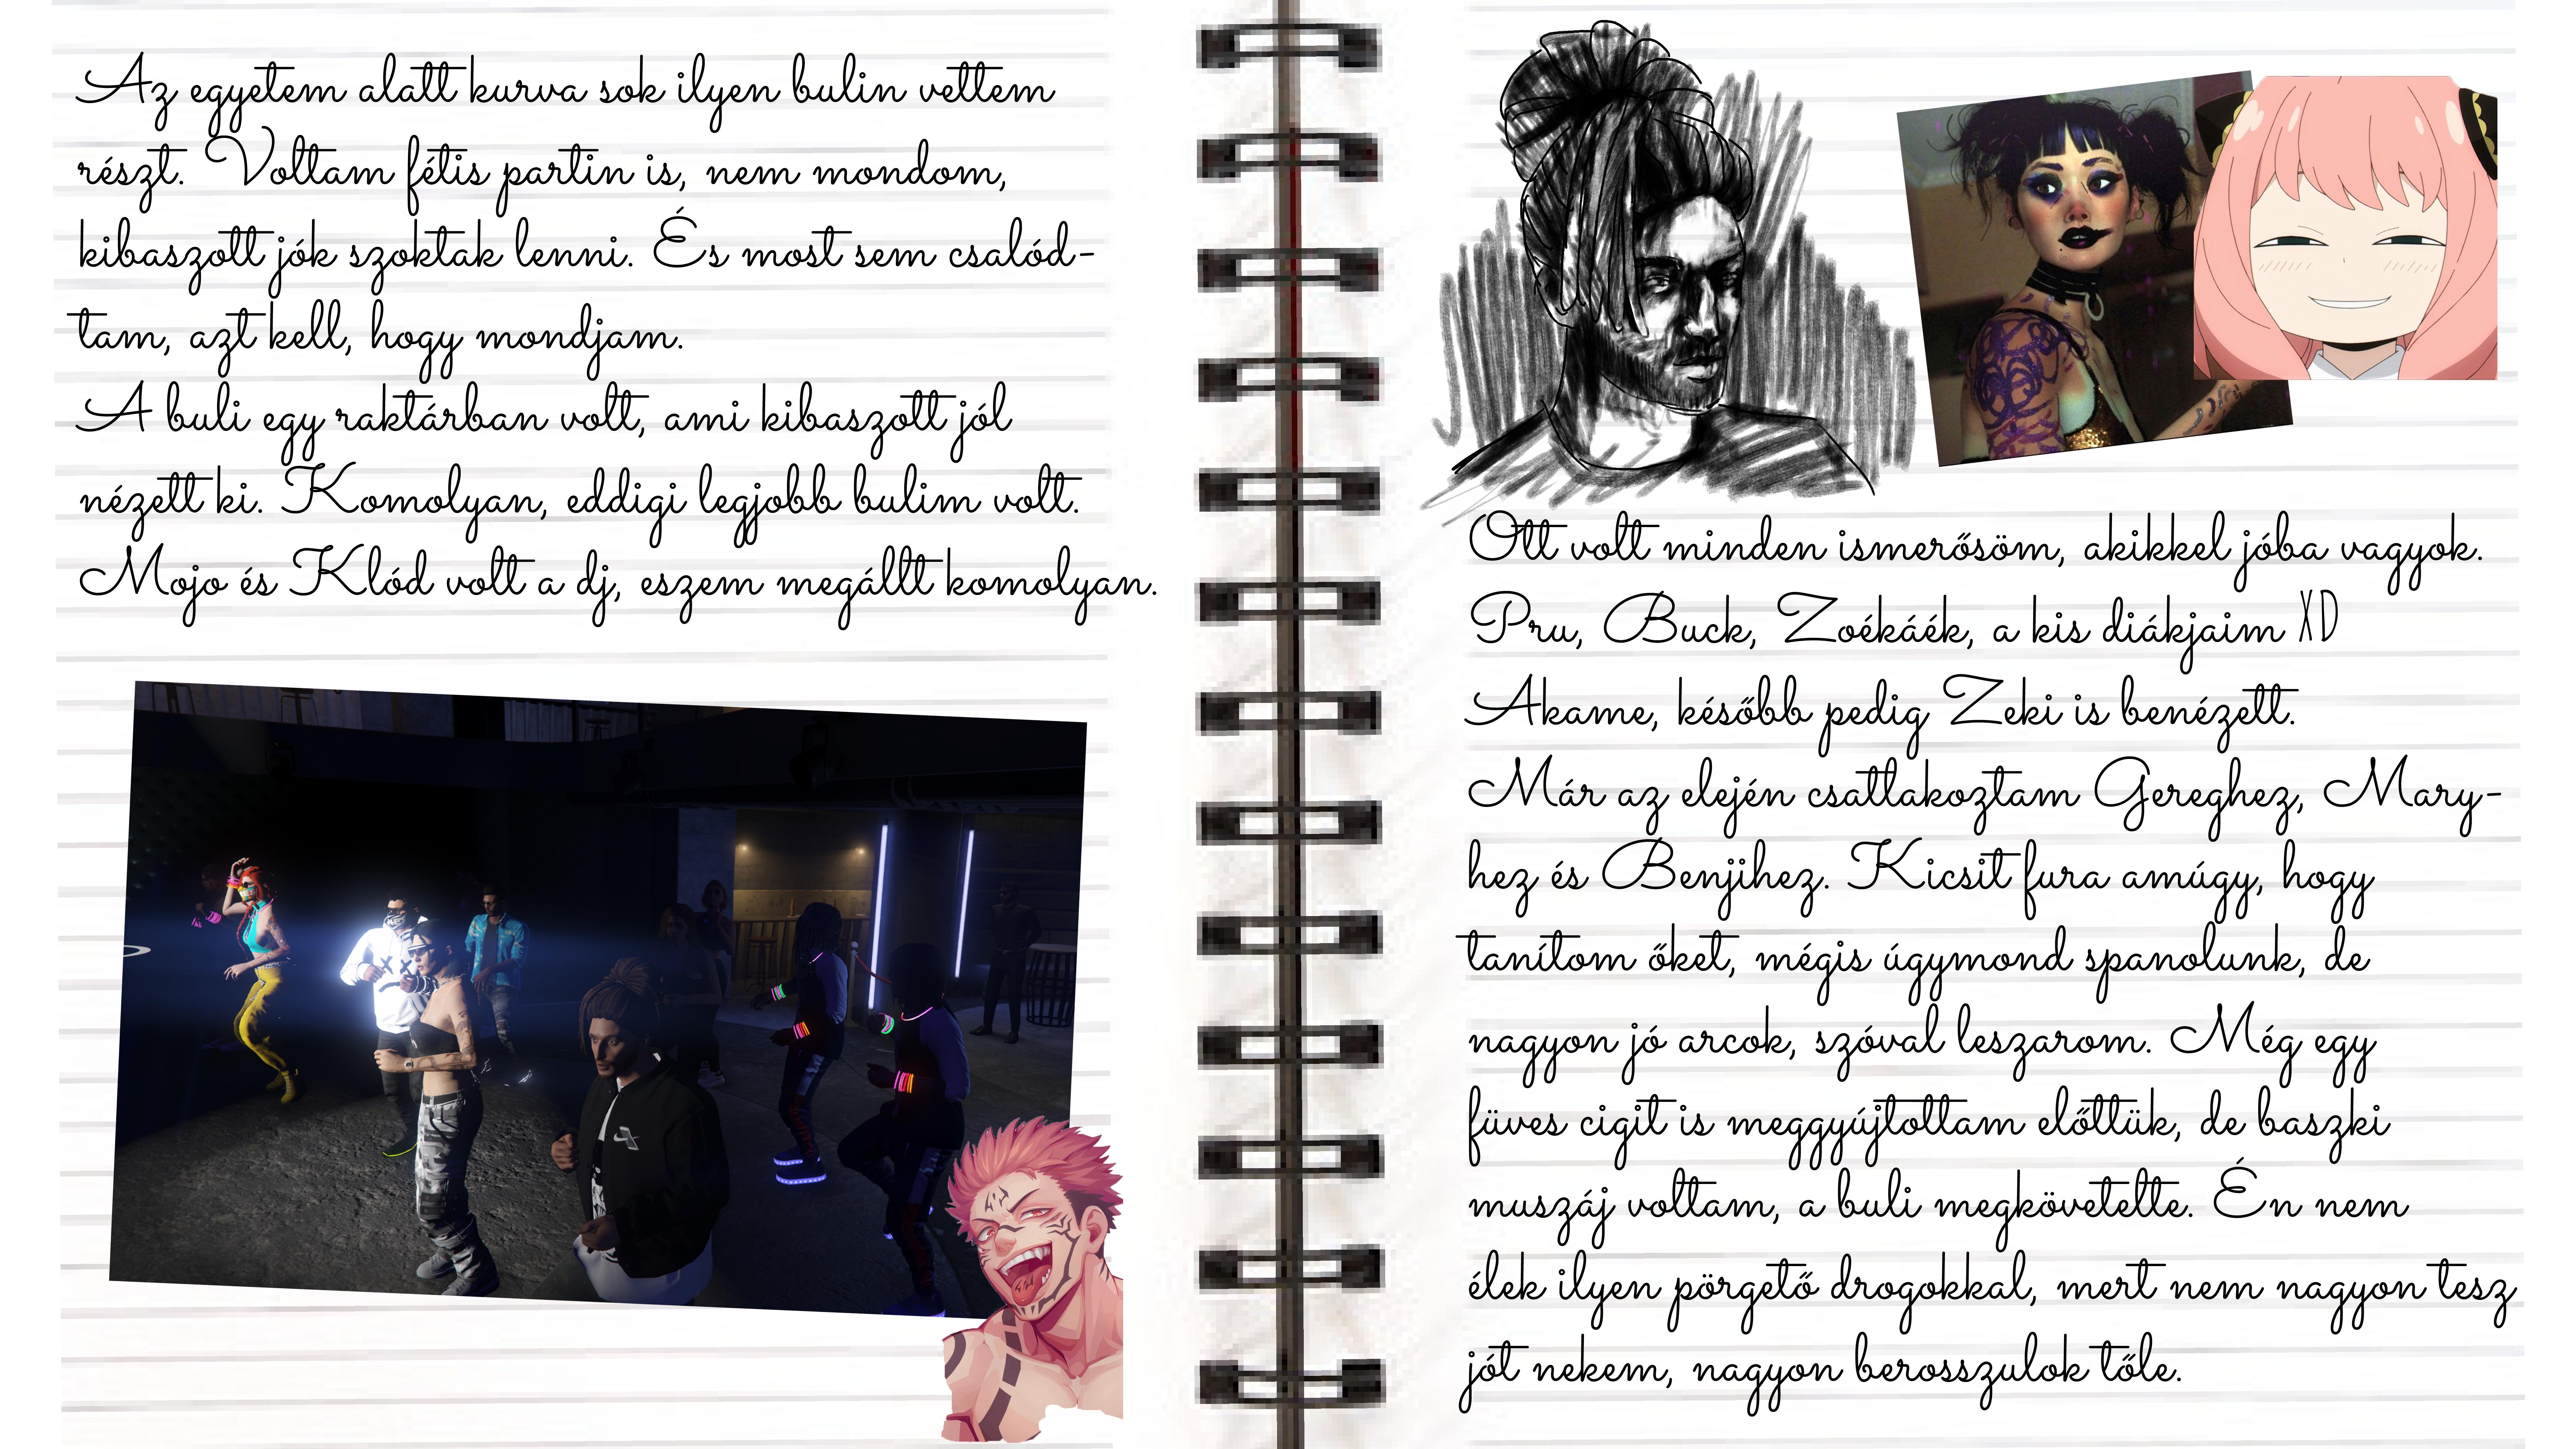 Az egyetem alatt kurva sok ilyen bulin vettem
részt. Voltam fétis partin is, nem mondom,
kibaszott jók szoktak lenni. És most sem csalód-
tam, azt kell, hogy mondjam.
A buli egy raktárban volt, ami kibaszott jól
nézett ki. Komolyan, eddigi legjobb bulim volt.
Mojo és Klód volt a dj, eszem megállt komolyan.
Ott volt minden ismerősöm, akikkel jóba vagyok.
Pru, Buck, Zoékáék, a kis diákjaim XD
Akame, később pedig Zeki is benézett.
Már az elején csatlakoztam Gereghez, Mary-
hez és Benjihez. Kicsit fura amúgy, hogy
tanítom őket, mégis úgymond spanolunk, de
nagyon jó arcok, szóval leszarom. Még egy
füves cigit is meggyújtottam előttük, de baszki
muszáj voltam, a buli megkövetelte. Én nem
élek ilyen pörgető drogokkal, mert nem nagyon tesz
jót nekem, nagyon berosszulok tőle.